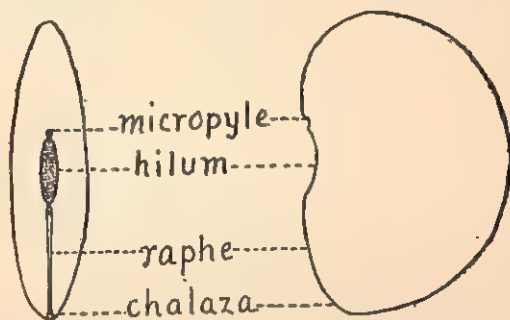 micropyle
hilum
raphe
chalaza